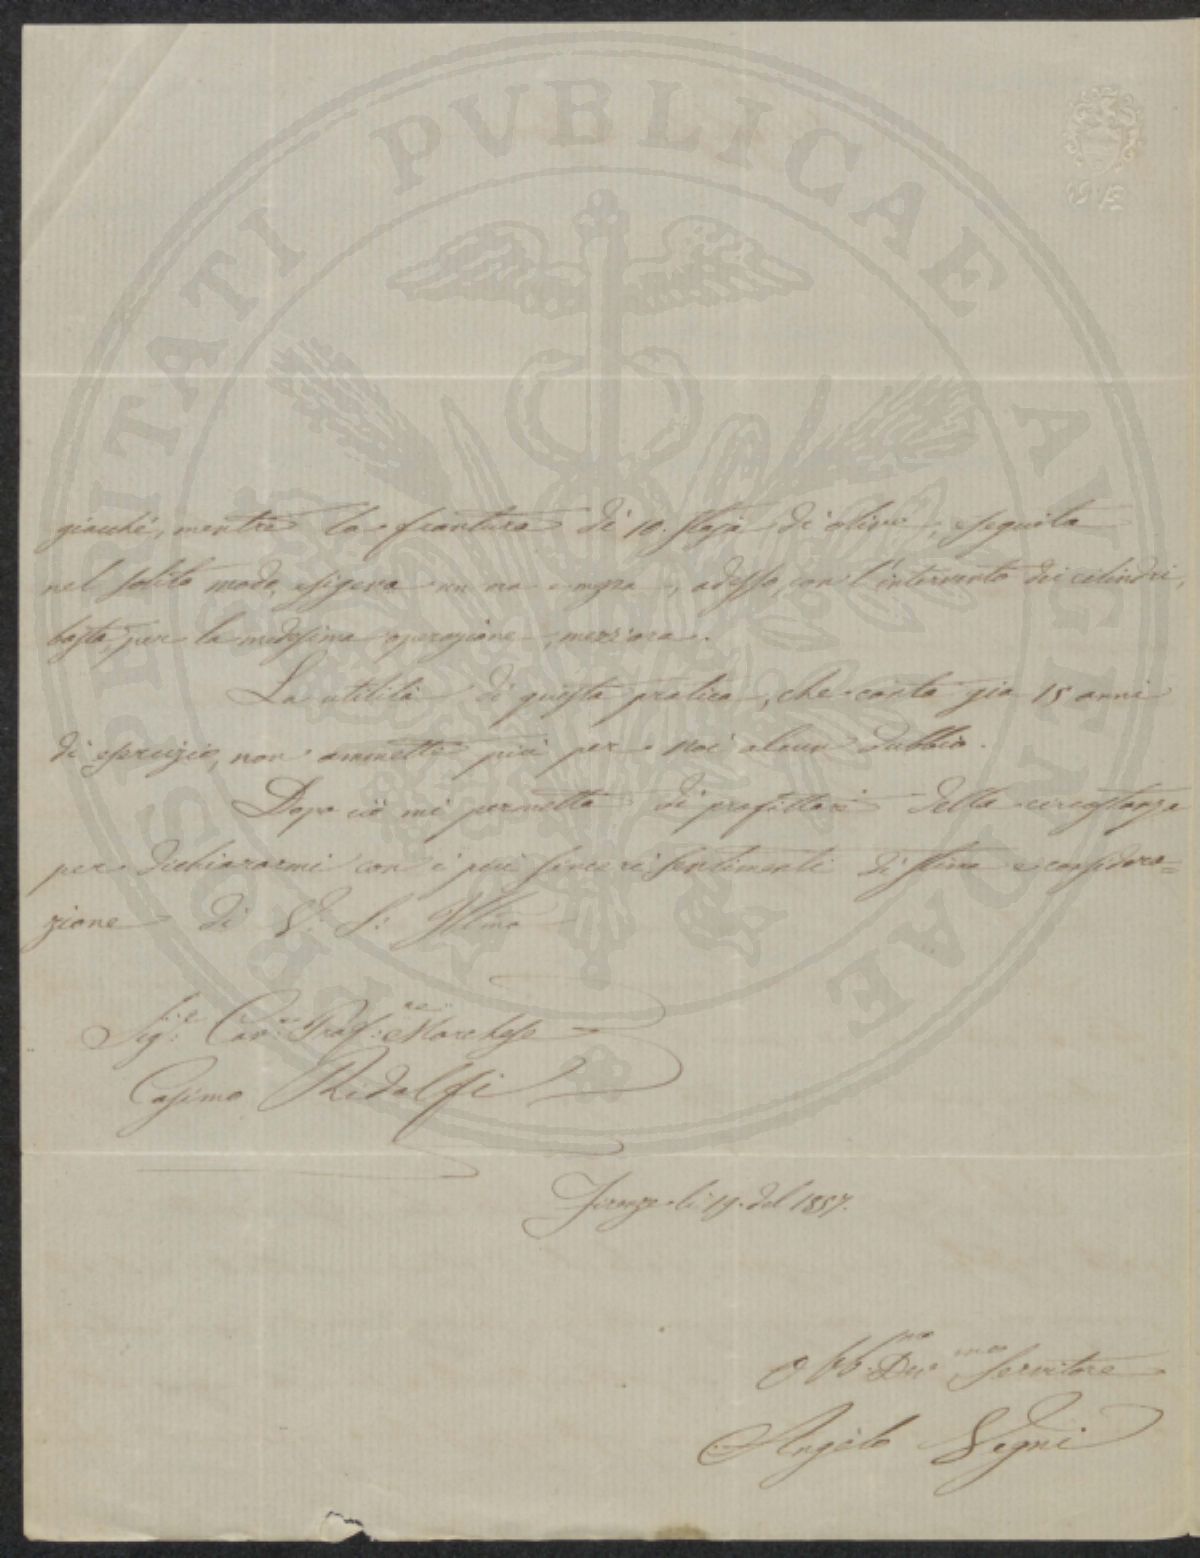 PROSPERITATI PVBLICAE AVGENDAE
giacché, mentre la frantura di 10. staja di olive, eseguita
nel solito modo, esigeva un ora e mezza, adesso, con l'intervento dei cilindri,
basta, per la medesima operazione, mezz'ora.
La utilità di questa pratica, che conta già 15 anni
di esercizio, non ammette più per noi alcun dubbio.
Dopo ciò mi permetta di profittare della circostanza
per dichiararmi con i più sinceri sentimenti di stima e considera=
zione di V. S. Illma
Sig.e Cav.e Prof.re Marchese
Cosimo Ridolfi
Firenze li 19. del 1857.
Obb. Dev.mo Servitore
Angelo Vegni